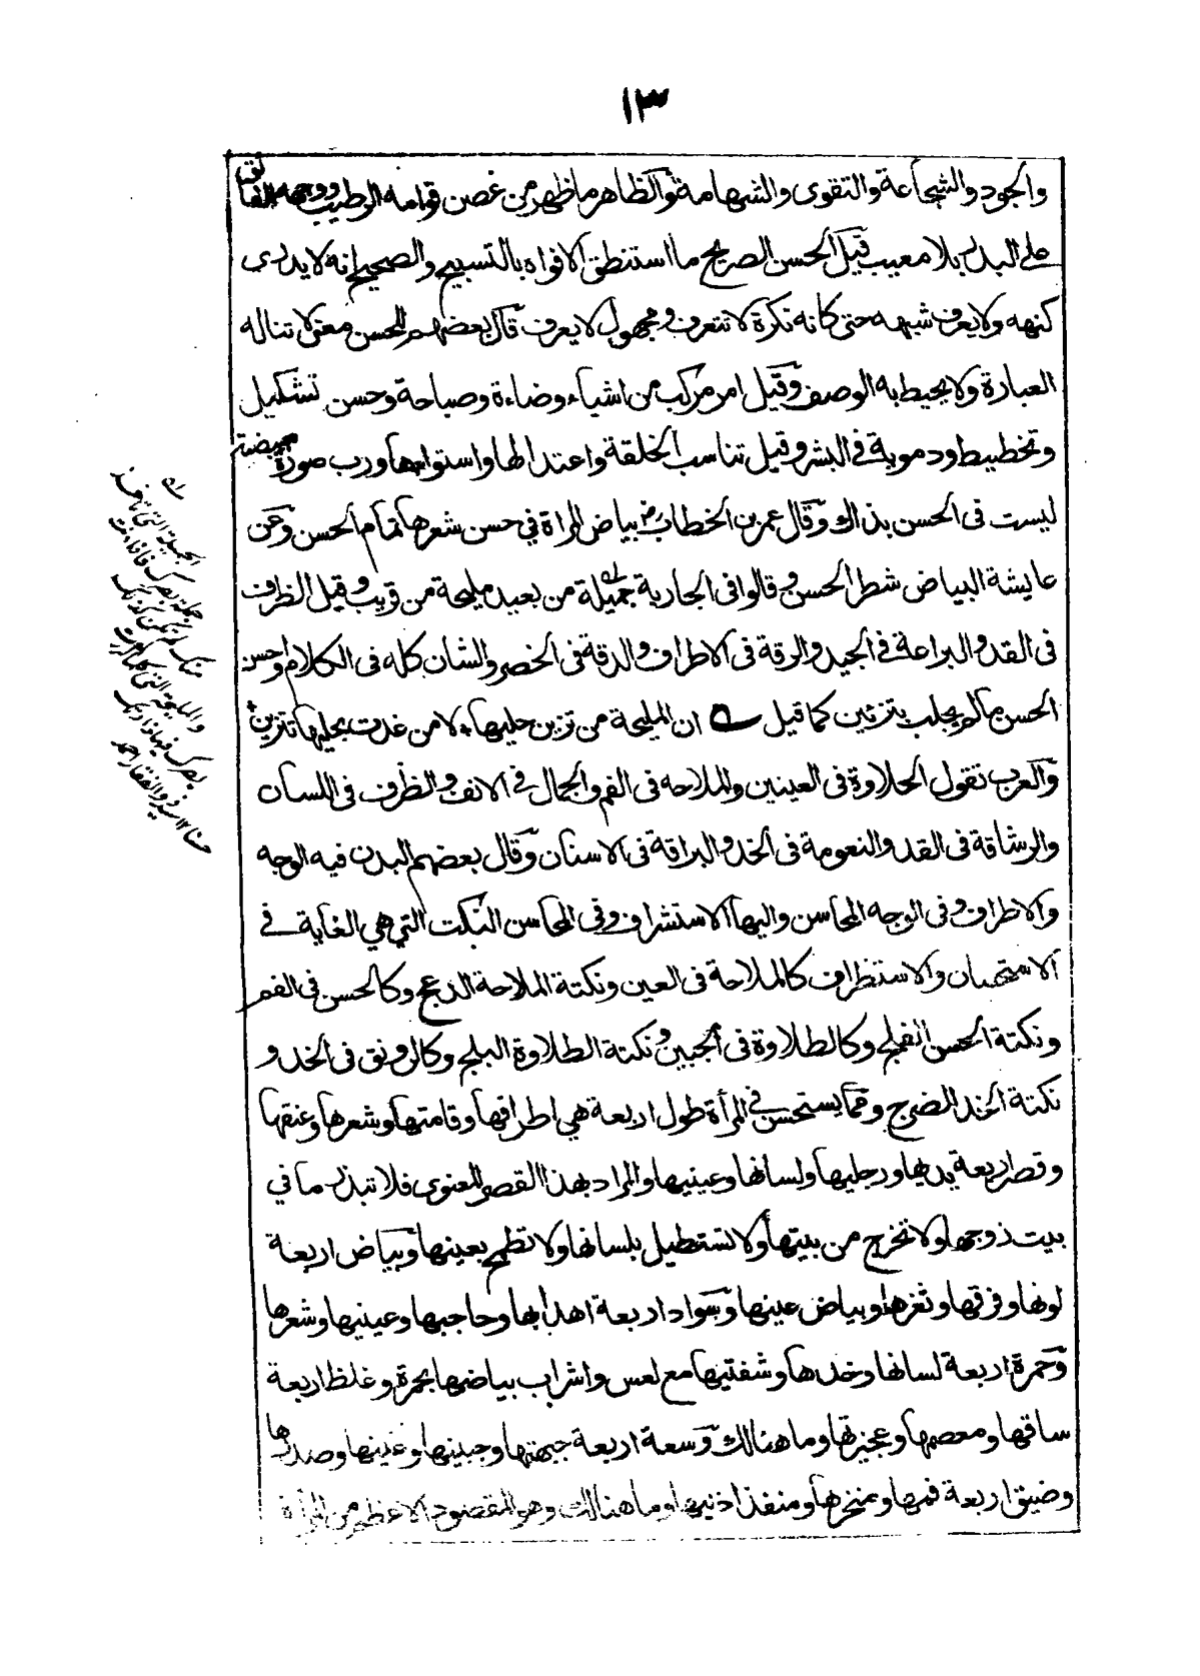 ١٣
والجود والشجاعة والتقوى والشهامة والظاهر ما ظهر من غصن قوامه الرطيب ووجهه الفائق
على البدر بلا معيب قيل الحسن الصريح ما استنطق الافواه بالتسبيح والصحيح انه لا يدرى
كنهه ولا يعرف شبهه حتى كانه نكرة لا تتعرف ومجهول لا يعرف قال بعضهم للحسن معنى لا تناله
العبارة ولا يحيط به الوصف وقيل امر مركب من اشياء وضاءة وصباحة وحسن تشكيل
وتخطيط ودموية في البشر وقيل تناسب الخلقة واعتدالها واستواءها ورب صورة مبيضة
ليست فى الحسن بذاك وقال عمر بن الخطاب بياض المراة في حسن شعرها تمام الحسن وعن
عايشة البياض شطر الحسن وقالوا فى الجارية جميلة من بعيد مليحة من قريب وقيل الظرف
فى القد والبراعة في الجيد والرقة فى الاطراف والدقة فى الخصر والشان كله فى الكلام واحسن
الحسن مالم يجلب بتزئين كما قيل ان المليحة من تزين حليها لا من غدت بحليها تتزين
والعرب تقول الحلاوة فى العينين والملاحه فى الفم والجمال في الانف والظرف فى اللسان
والرشاقة فى القد والنعومة فى الخد والبراقة فى الاسنان وقال بعضهم البدن فيه الوجه
والاطراف وفى الوجه المحاسن واليها الاستشراف وفى المحاسن النكت التي هي الغاية في
الاستحسان والاستظراف كالملاحة فى العين ونكتة الملاحة الدعج وكالحسن فى الفم
ونكتة الحسن الفلج وكالطلاوة فى الجبين ونكتة الطلاوة البلج وكالرونق فى الخد و
نكتة الخد الضرج ومما يستحسن في المرأة طول اربعة هي اطرافها وقامتها وشعرها وعنقها
وقصر اربعة يديها ورجليها ولسانها وعينيها والمراد بهذا القصر المعنوى فلا تبذر ما في
بيت زوجها ولا تخرج من بيتها ولا تستطيل بلسانها ولا تطمح بعينها وبياض اربعة
لونها وفرقها وثغرها وبياض عينها وسواد اربعة اهدابها وحاجبها وعينيها وشعرها
وحمرة اربعة لسانها وخدها وشفتيها مع لعس واشراب بياضها بحمرة وغلظ اربعة
ساقها ومعصمها وعجيزتها وما هنالك وسعة اربعة جبهتها وجبينها وعينها وصدرها
وضيق اربعة فمها ومنخرها ومنفذ اذنيها وما هنالك وهو المقصود الاعظم من المرأة
الجميلة التى تاخذ
والمليحة التى كلما كررت
ذو الفقار احمد